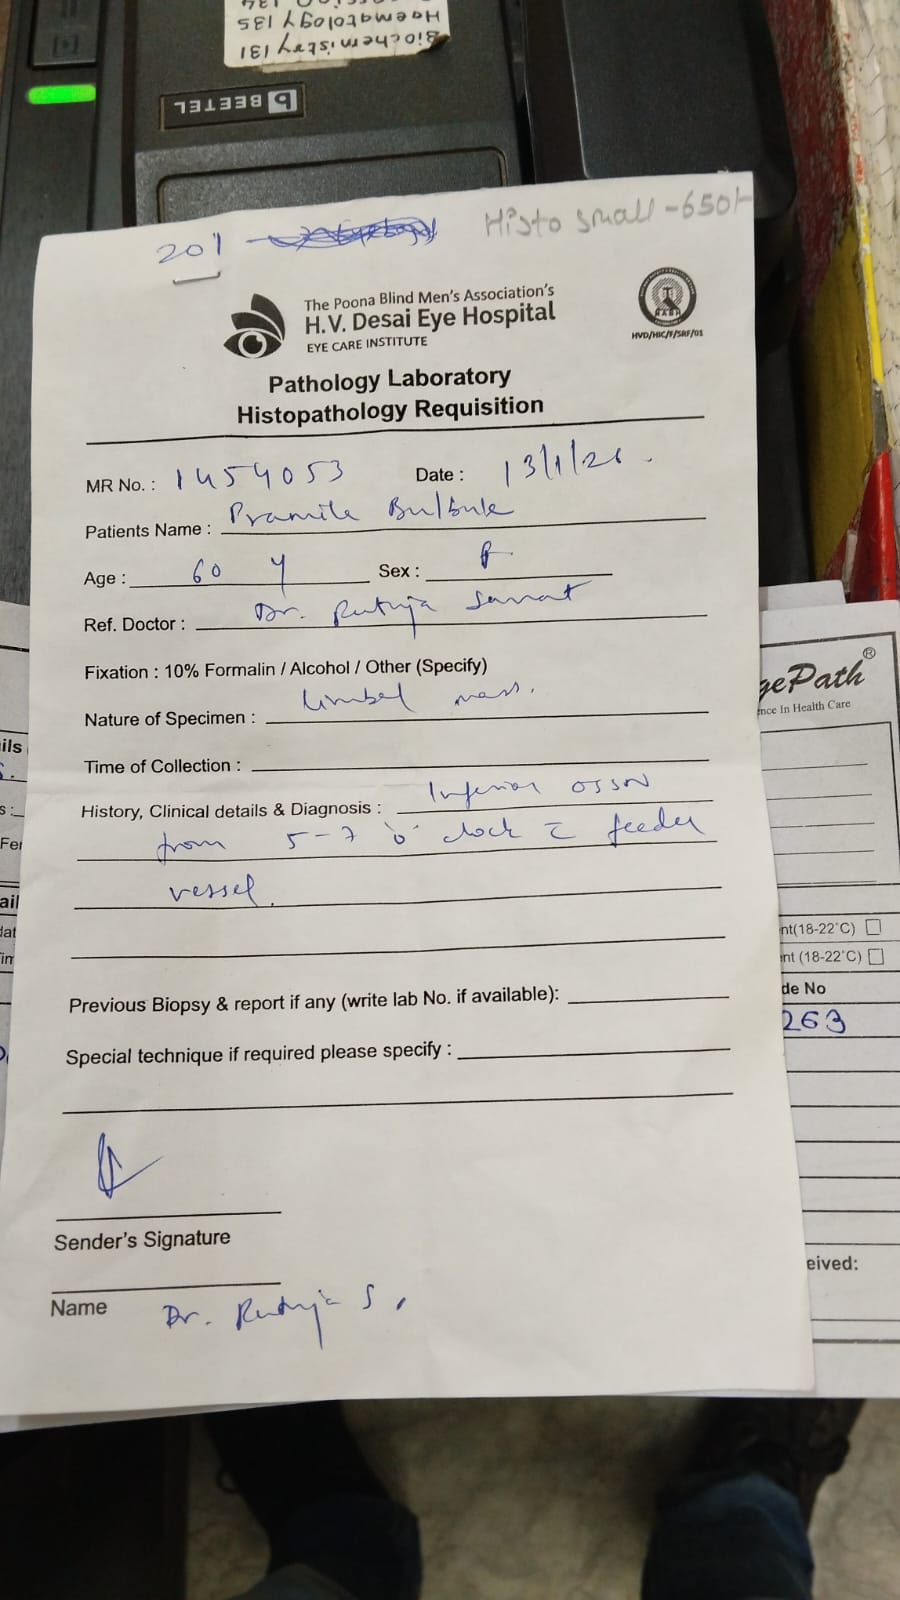 Biochemistry 131
Haematology 135
BEETEL
201
Histo small -650/-
The Poona Blind Men's Association's
H.V. Desai Eye Hospital
EYE CARE INSTITUTE
HVD/HIC/F/SRF/01
Pathology Laboratory
Histopathology Requisition
MR No. : 1454053 Date : 13/1/26.
Patients Name : Pramila Bulbule
Age : 60 y Sex : F
Ref. Doctor : Dr. Rutuja
Fixation : 10% Formalin / Alcohol / Other (Specify)
Nature of Specimen : limbal mass.
Time of Collection :
History, Clinical details & Diagnosis : Inferior OSSN
from 5-7 o' clock c̄ feeder
vessel.
Previous Biopsy & report if any (write lab No. if available):
Special technique if required please specify :
Sender's Signature
Name Dr. Rutuja S.
gePath®
nce In Health Care
nt(18-22°C)
nt (18-22°C)
de No
263
eived: